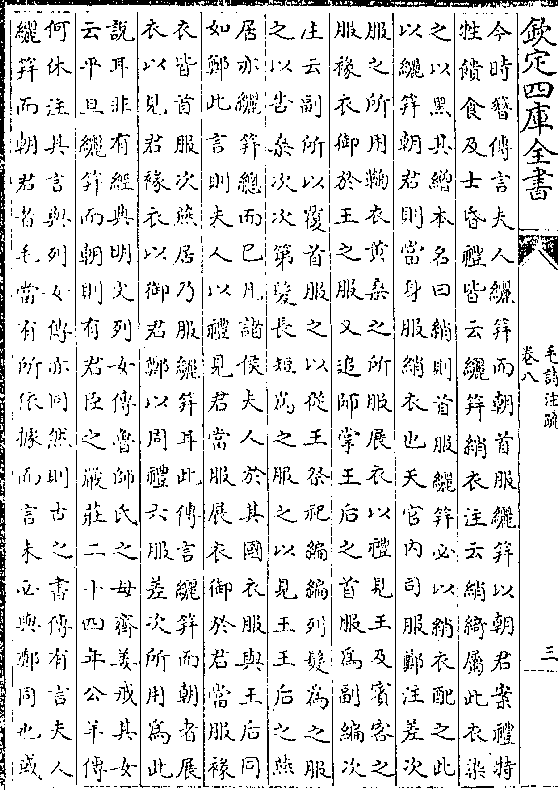 欽定四庫全書
毛詩注疏
卷八
三
今時簪傳言夫人纚筓而朝首服纚筓以朝君案禮特
牲饋食及士昏禮皆云纚筓綃衣注云綃綺屬此衣染
之以黑其繒本名曰綃則首服纚筓必以綃衣配之此
以纚筓朝君則當身服綃衣也天官内司服鄭注差次
服之所用鞠衣黄桑之所服展衣以禮見王及賓客之
服褖衣御於王之服又追師掌王后之首服為副編次
注云副所以覆首服之以從王祭祀編編列髪為之服
之以告桑次次第髪長短為之服之以見王王后之燕
居亦纚筓總而已凡諸侯夫人於其國衣服與王后同
如鄭此言則夫人以禮見君當服展衣御於君當服褖
衣皆首服次燕居乃服纚筓耳此傳言纚筓而朝者展
衣以見君褖衣以御君鄭以周禮六服差次所用為此
說耳非有經典明文列女傳魯師氏之母齊姜戒其女
云平旦纚筓而朝則有君臣之嚴莊二十四年公羊傳
何休注其言與列女傳亦同然則古之書傳有言夫人
纚筓而朝君者毛當有所依據而言未必與鄭同也或